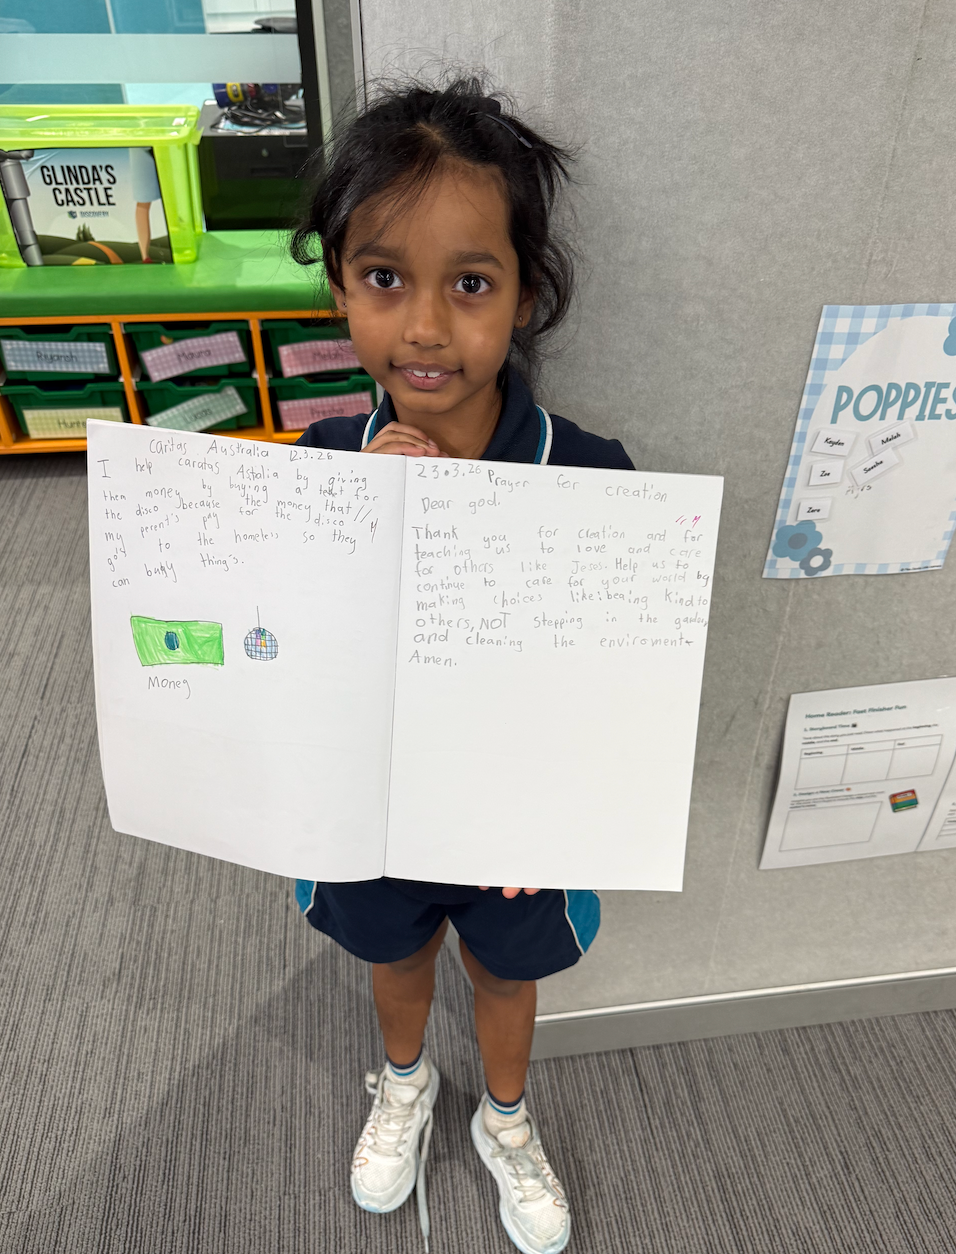 GLINDA'S
CASTLE
DISCOVERY
Riyansh
Maura
Hunter
Lucas
Caritas Australia 12.3.26
I help caratas Astalia by giving
them money by buying a teket for
the disco because the money that
my perent's pay for the disco
gose to the homeless so they
can buygy thing's.
Moneg
23.3.26 Prayer for creation
Dear god.
Thank you for creation and for
teaching us to love and care
for others like Jesus. Help us to
continue to care for your world by
making choices like: beaing kind to
others, NOT stepping in the garden,
and cleaning the enviroment
Amen.
POPPIES
Kayden
Maliah
Zoe
Sasha
Zara
Home Reader: Fast Finisher Fun
1. Storyboard Time
Beginning
Middle
End